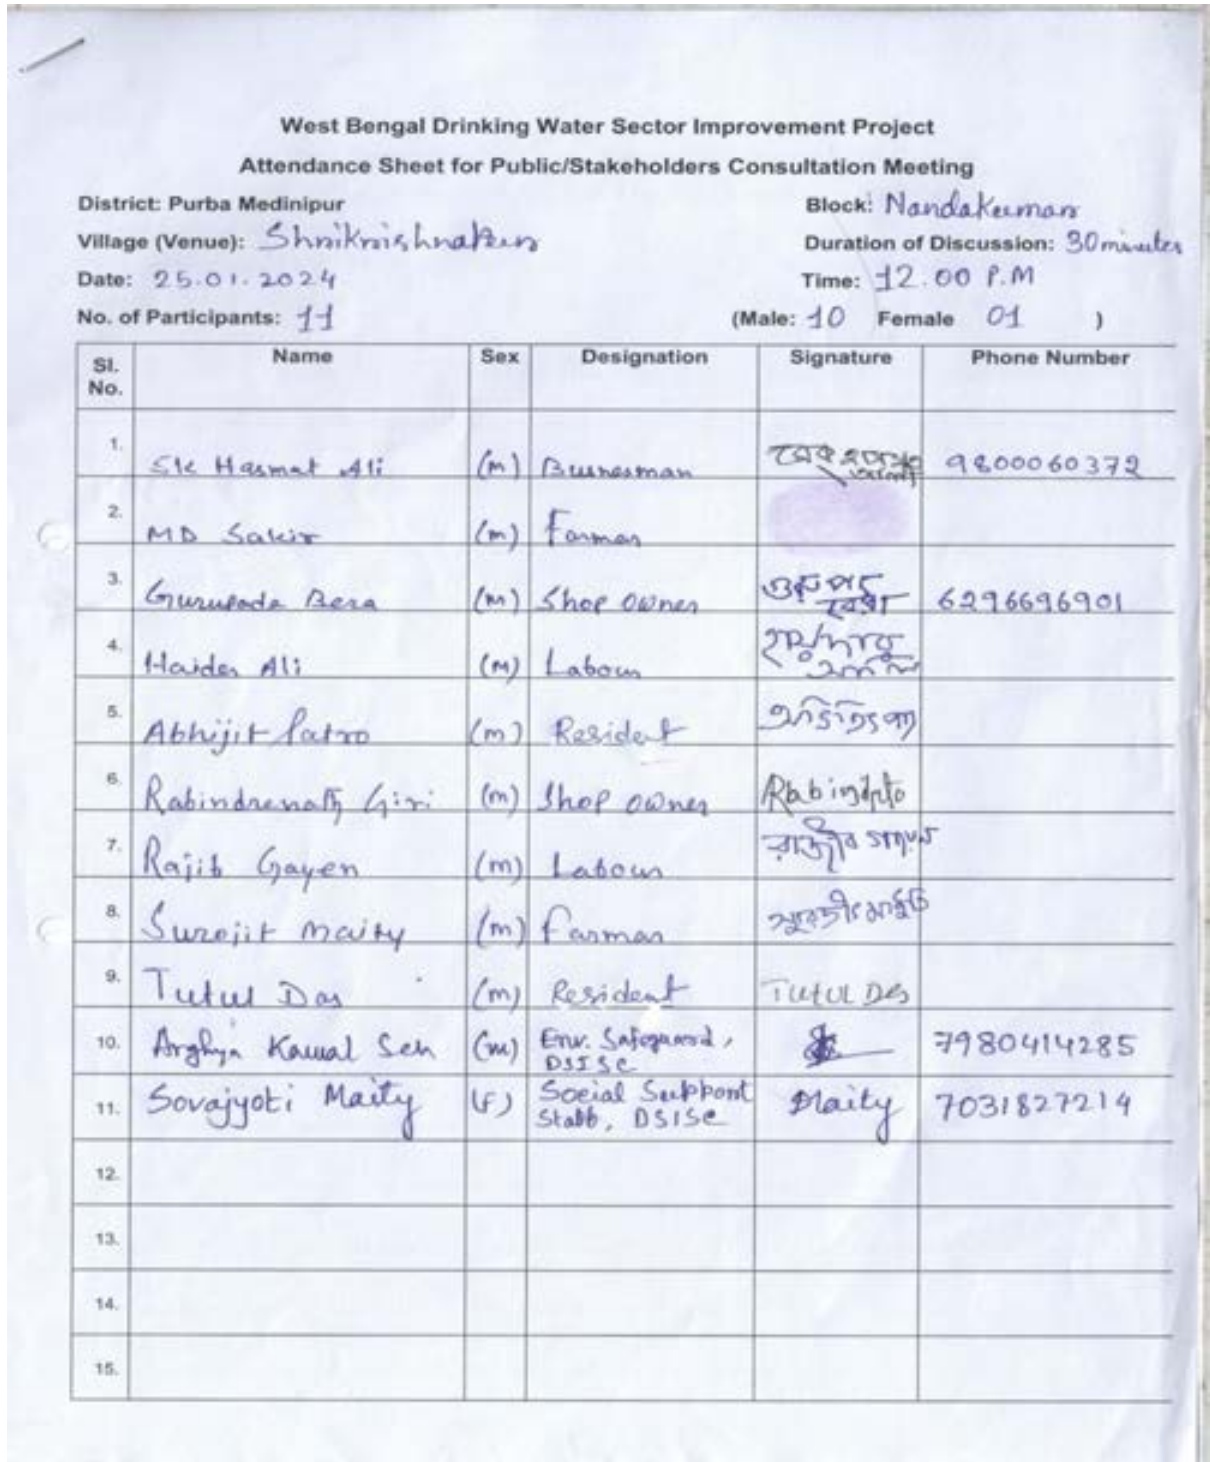 West Bengal Drinking Water Sector Improvement Project
Attendance Sheet for Public/Stakeholders Consultation Meeting
District: Purba Medinipur Block: Nandakumar
Village (Venue): Shrikrishnapur Duration of Discussion: 30 minutes
Date: 25.01.2024 Time: 12.00 P.M
No. of Participants: 11 (Male: 10 Female 01 )
Sl. No. Name Sex Designation Signature Phone Number
1. Sk Hasmat Ali (m) 9800060372
2. MD Sakir (m) Farmar
3. Gurupada Bera (m) Shop owner গুরুপদ বেরা 6296696901
4. Haider Ali (M) Labour
5. Abhijit Patro (m) Resident
6. Rabindranath Giri (m) Shop owner
7. Rajib Gayen (m) Labour রাজীব
8. Surojit Maity (m) Farmar
9. Tutul Das (m) Resident TUtUL Das
10. Arghya Kamal Sen (m) Env. Safeguard, DSISC 7980414285
11. Sovajyoti Maity (F) Social Support Staff, DSISC Maity 7031827214
12.
13.
14.
15.